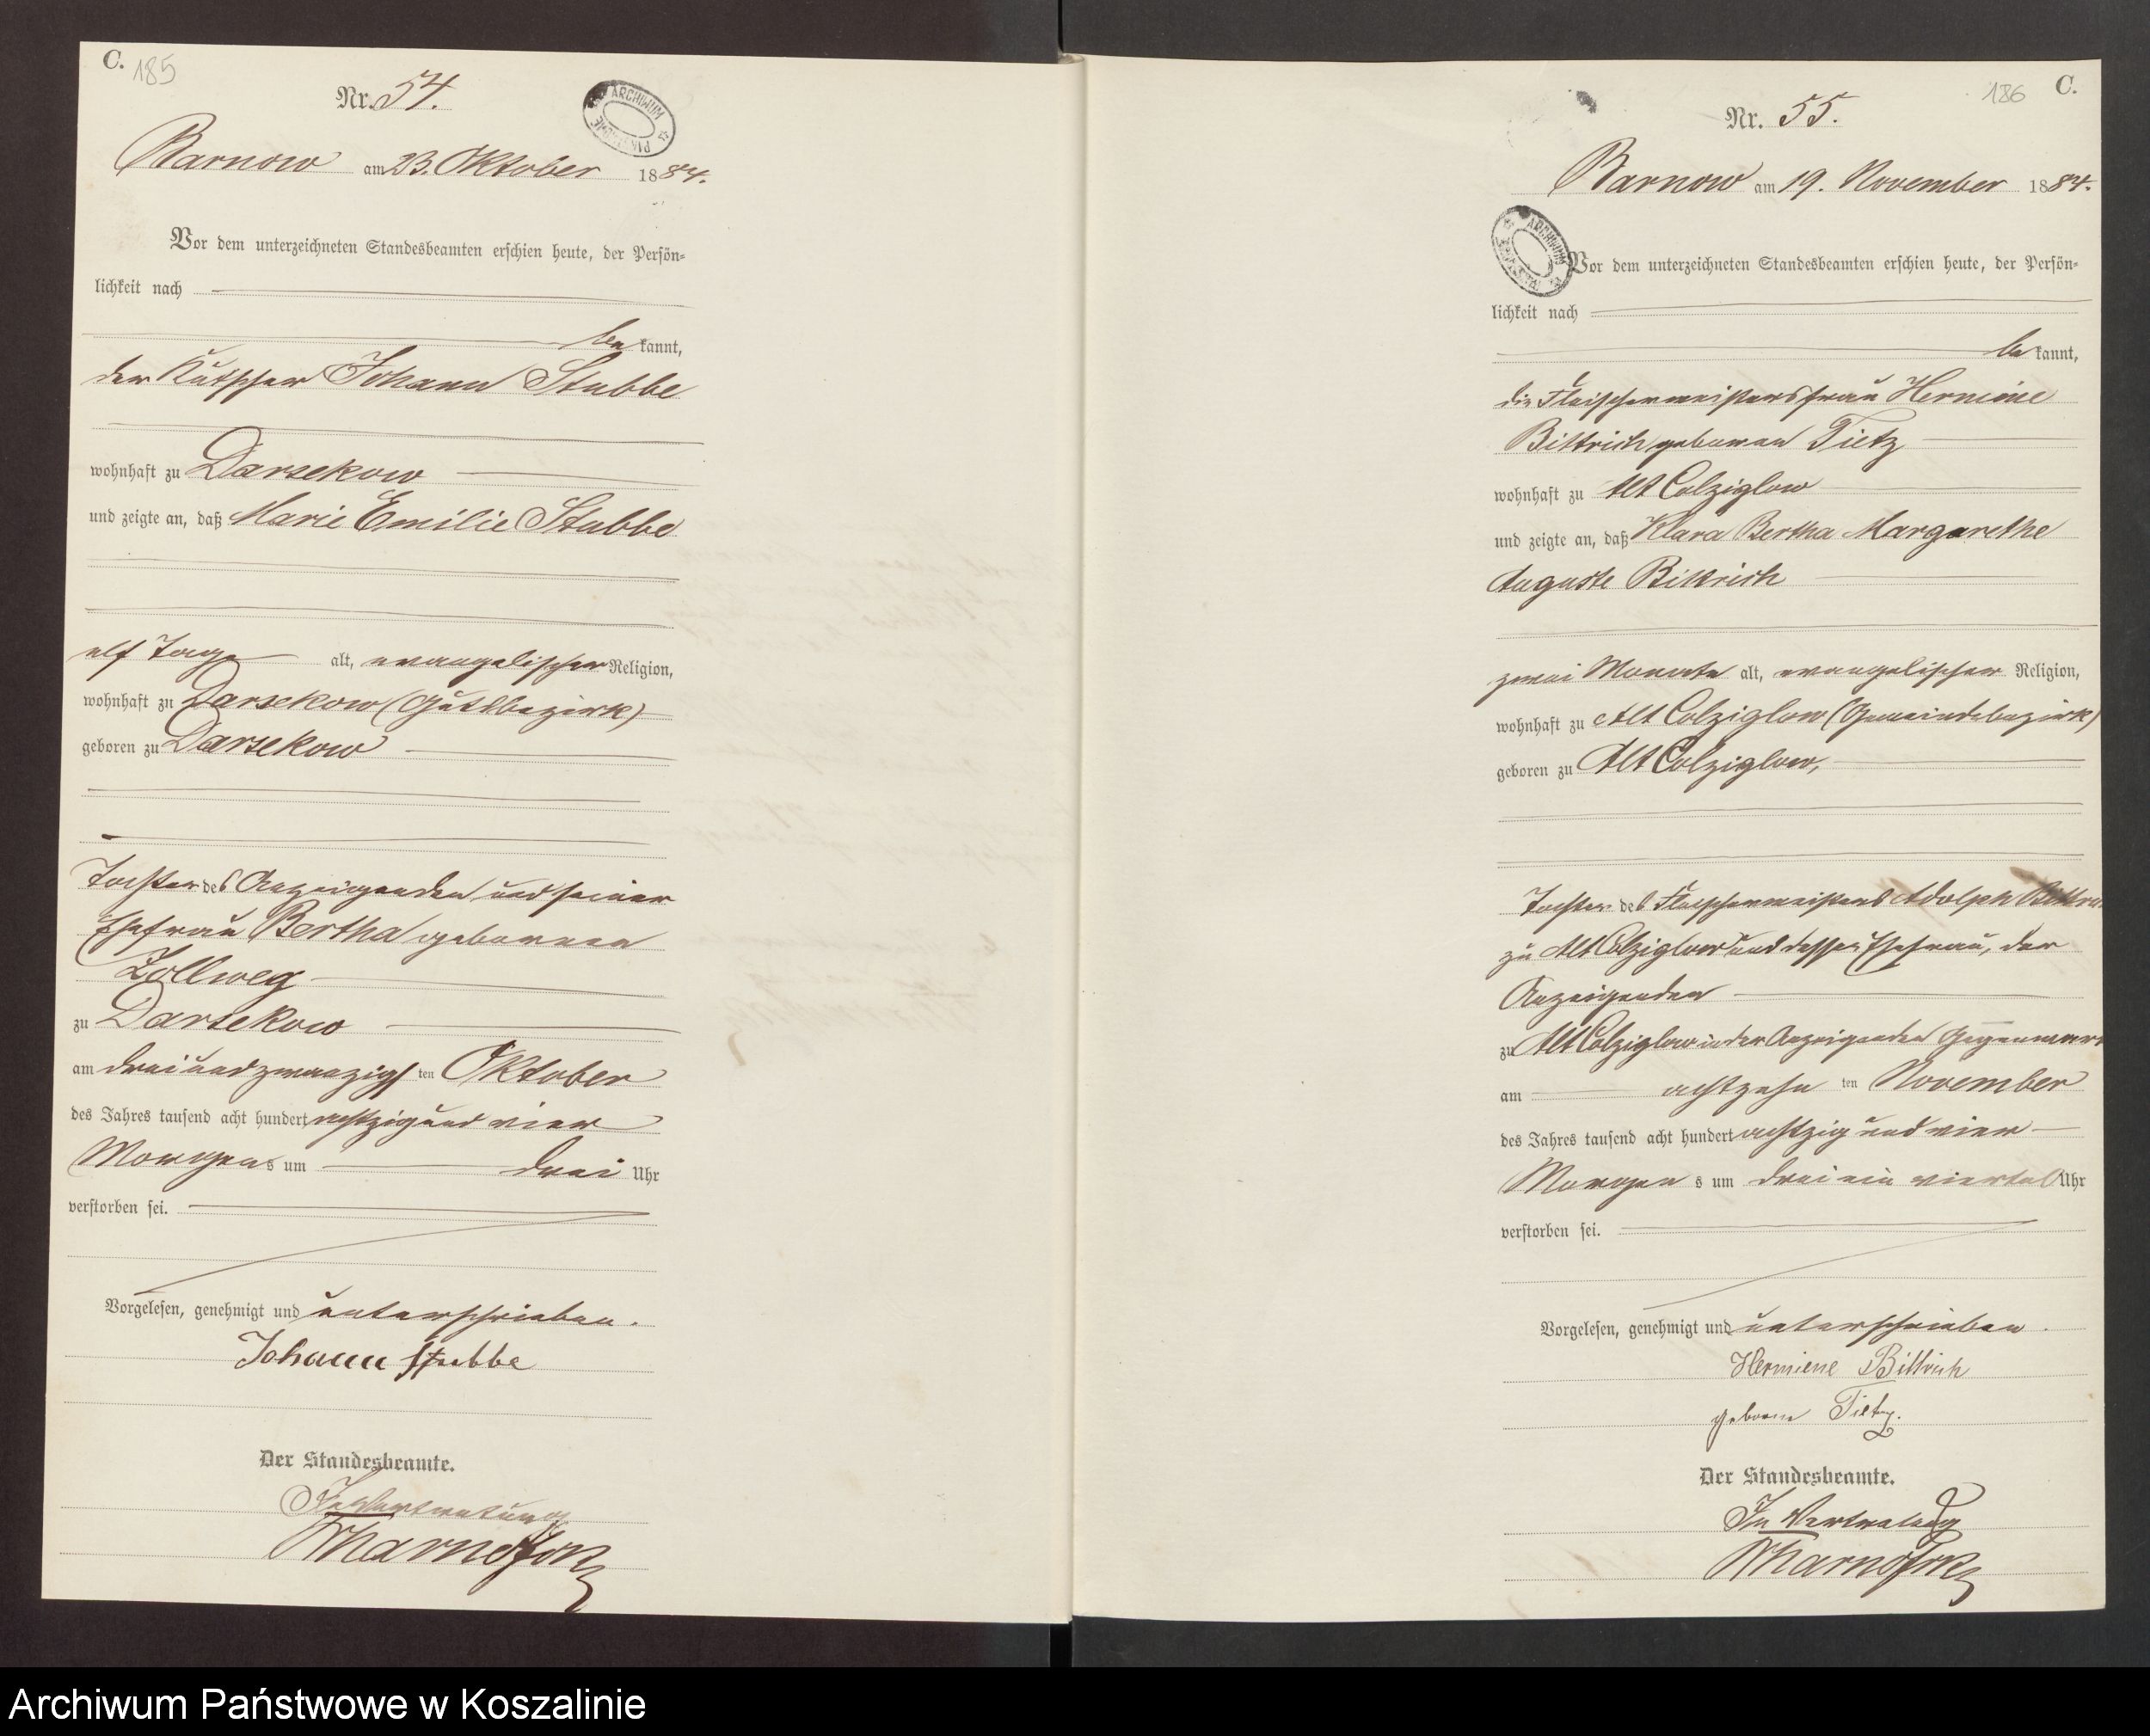 C. 185
Nr. 54.
ARCHIWUM
Barnow am 23. Oktober 1884.
Vor dem unterzeichneten Standesbeamten erschien heute, der Persön-
lichkeit nach
be kannt,
der Kutscher Johann Stubbe
wohnhaft zu Darsekow
und zeigte an, daß Marie Emilie Stubbe
elf Tage alt, evangelischer Religion,
wohnhaft zu Darsekow (Gutsbezirk)
geboren zu Darsekow
Tochter des Anzeigenden und seiner
Ehefrau Bertha geborenen
Zollweg
zu Darsekow
am dreiundzwanzigsten Oktober
des Jahres tausend acht hundert achtzig und vier
Morgens um drei Uhr
verstorben sei.
Vorgelesen, genehmigt und unterschrieben.
Johann Stubbe
Der Standesbeamte.
In Vertretung
186 C.
Nr. 55.
Barnow am 19. November 1884.
ARCHIWUM
Vor dem unterzeichneten Standesbeamten erschien heute, der Persön-
lichkeit nach
be kannt,
die Fleischermeistersfrau Hermine
Bittrich geborene Tietz
wohnhaft zu Alt Colziglow
und zeigte an, daß Klara Bertha Margarethe
Auguste Bittrich
zwei Monate alt, evangelischer Religion,
wohnhaft zu Alt Colziglow (Gemeindebezirk)
geboren zu Alt Colziglow,
Tochter des Fleischermeisters Adolph Bittrich
zu Alt Colziglow und dessen Ehefrau, der
Anzeigenden
zu Alt Colziglow in der Anzeigenden Gegenwart
am achtzehn ten November
des Jahres tausend acht hundert achtzig und vier
Morgens um drei ein viertel Uhr
verstorben sei.
Vorgelesen, genehmigt und unterschrieben.
Hermiene Bittrich
geborne Tietz.
Der Standesbeamte.
In Vertretung
Archiwum Państwowe w Koszalinie